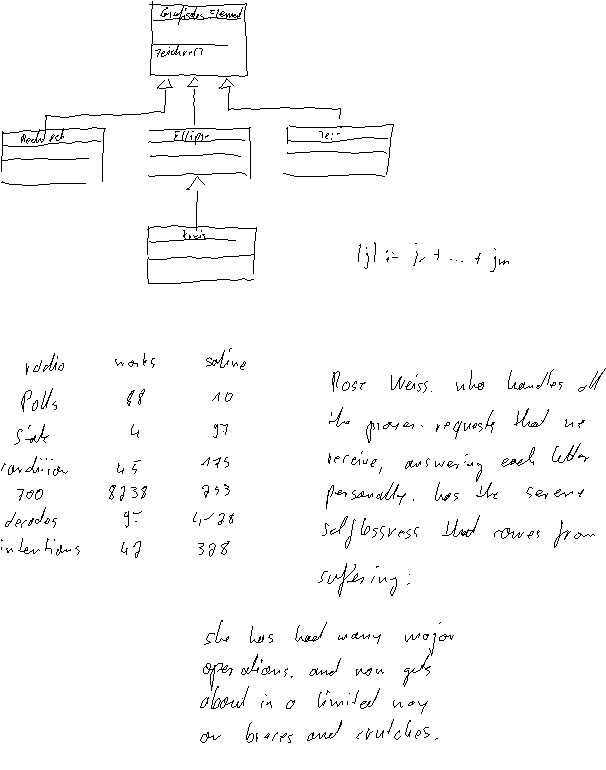 Grafisches Element
Zeichne()
Rechteck
Ellipse
Kreis
|j| := j1 + ... + jm
radio works satire
Polls 88 10
State 4 97
condition 45 175
700 8238 293
decades 95
intentions 42 328
Rose Weiss. who handles all
the prayer. requests that we
receive, answering each letter
personally. has the serene
selflessness that comes from
suffering:
she has had many major
operations. and now gets
about in a limited way
on braces and crutches.